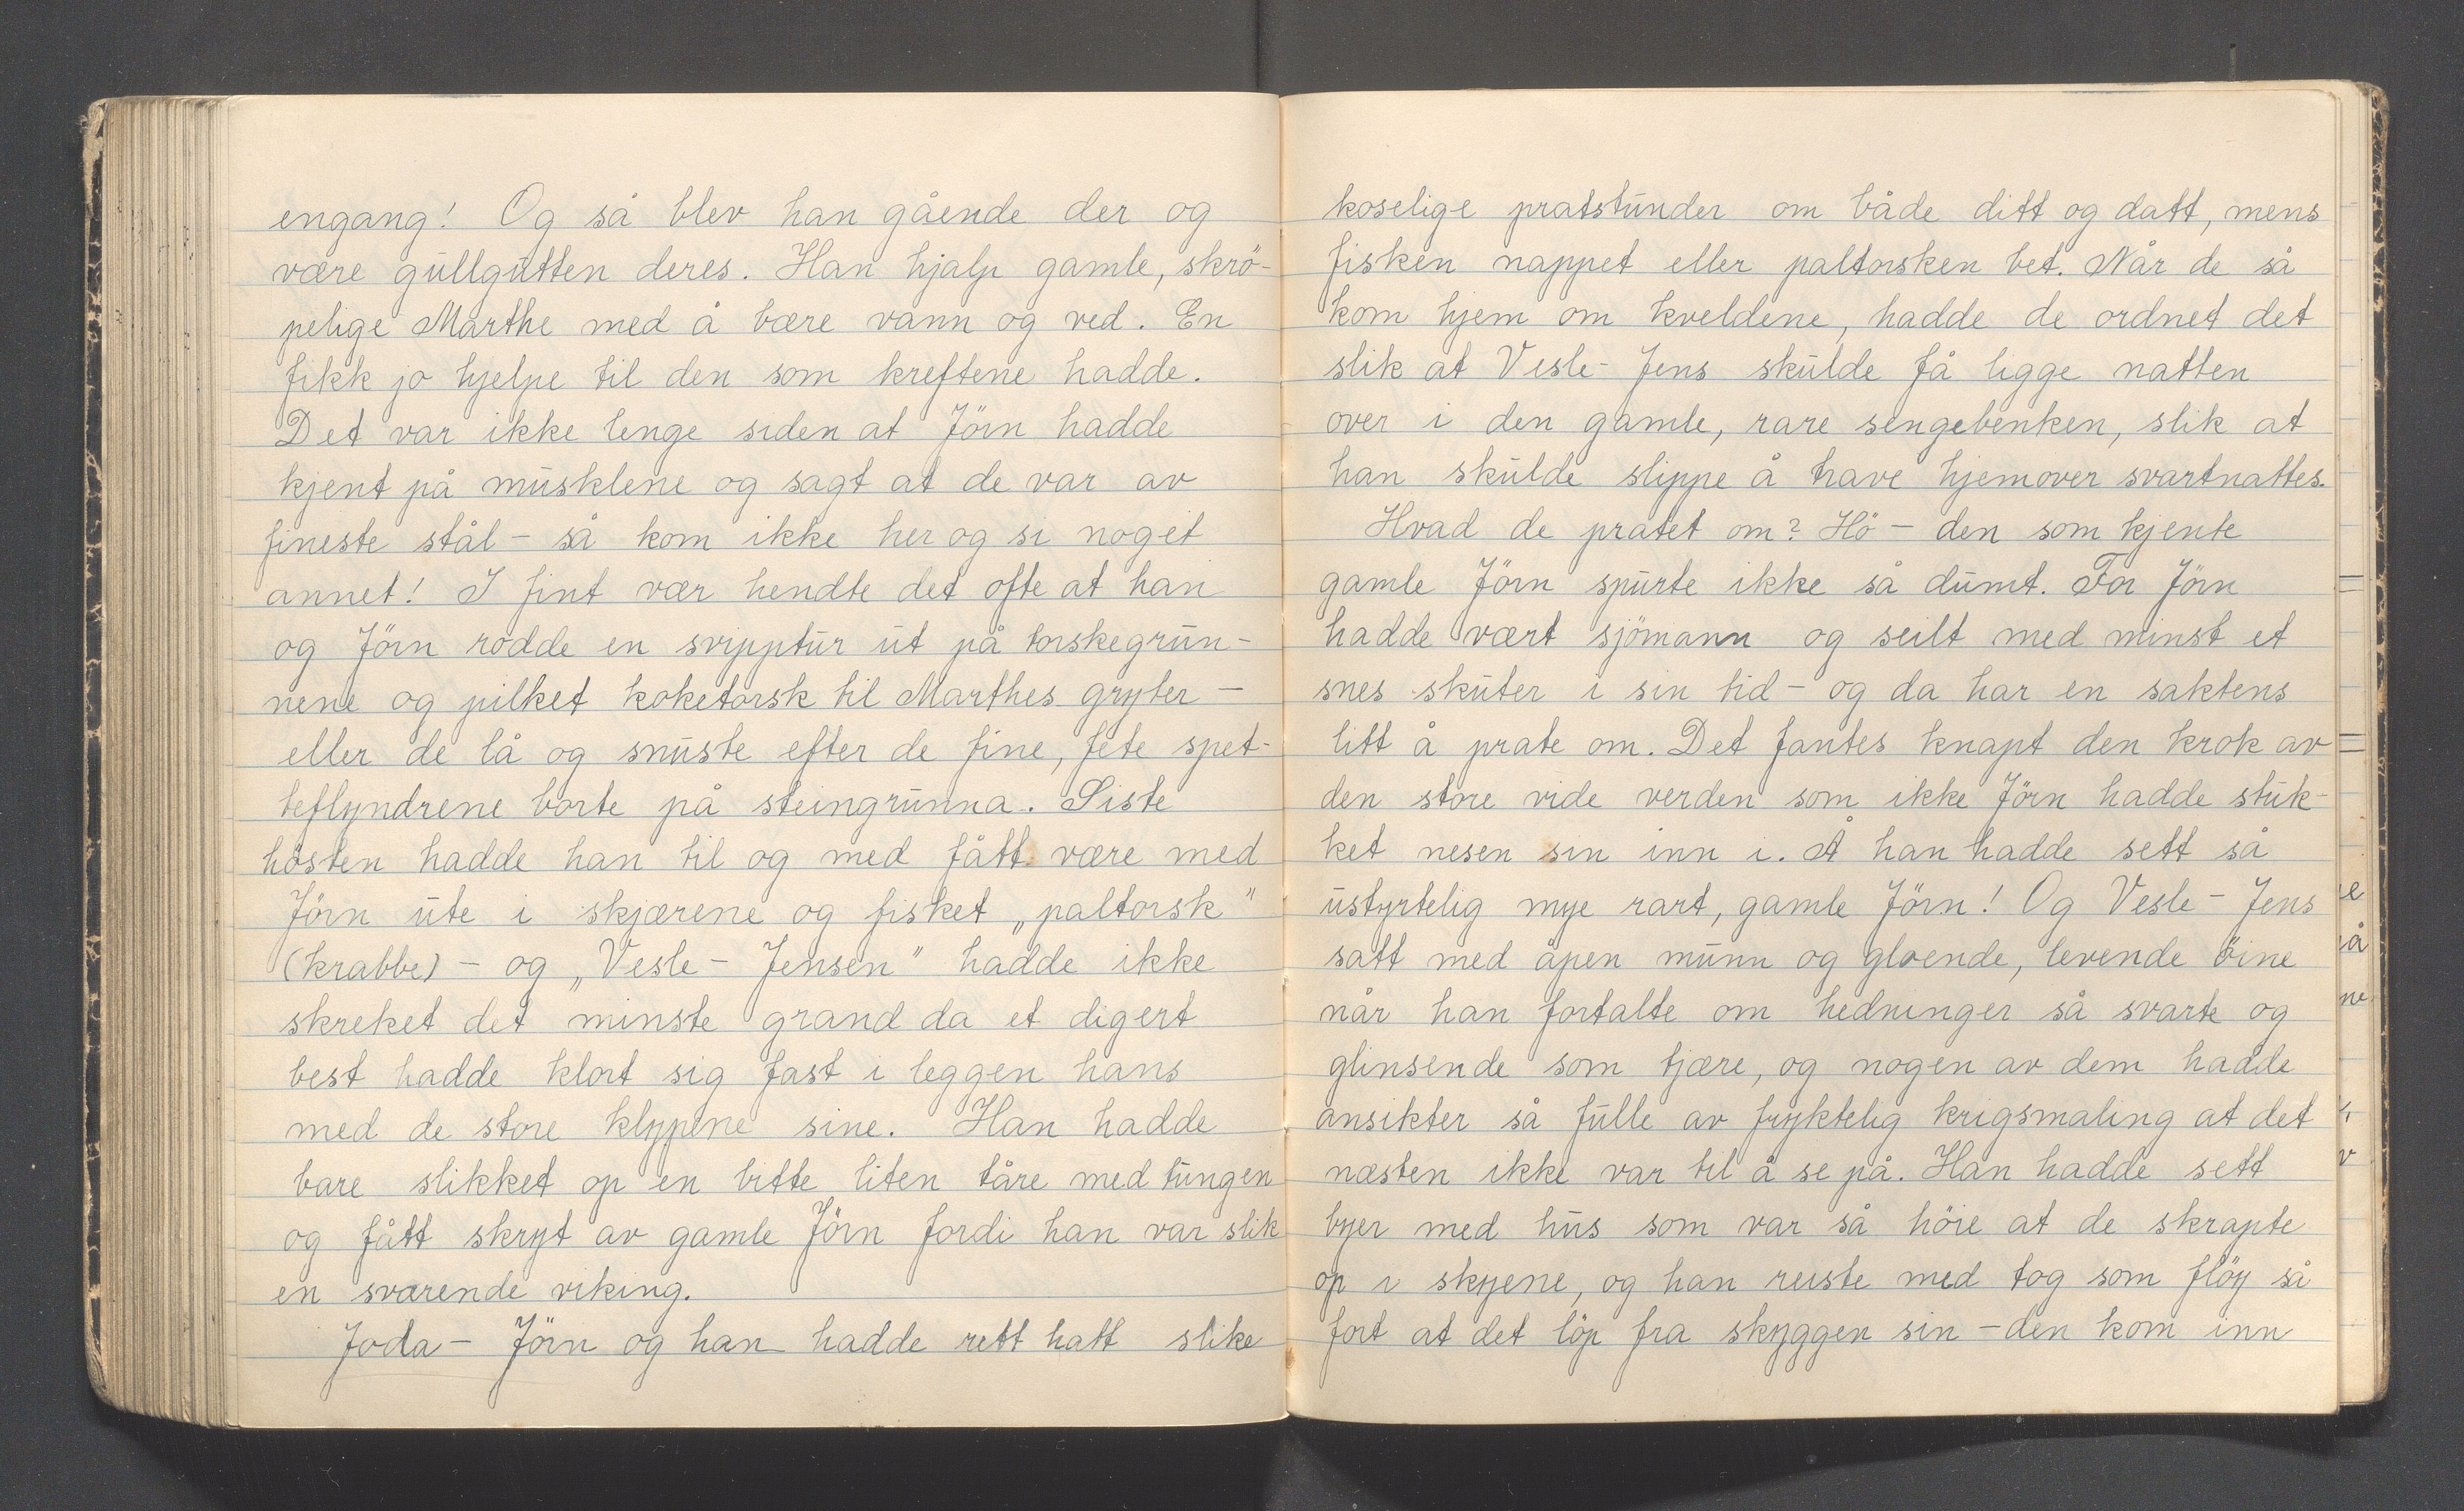 engang! Og så blev han gående der og
være gullgutten deres. Han hjalp gamle, skrö-
pelige Marthe med å bære vann og ved. En
fikk jo hjelpe til den som kreftene hadde.
Det var ikke lenge siden at Jörn hadde
kjent på musklene og sagt at de var av
fineste stål - så kom ikke her og si noget
annet! I fint vær hendte det ofte at han
og Jörn rodde en svipptur ut på torskegrun-
nene og pilket koketorsk til Marthes gryter -
eller de lå og snuste efter de fine, fete spet-
teflyndrene borte på steingrunna. Siste
hösten hadde han til og med fått være med
Jörn ute i skjærene og fisket „paltorsk"
(krabbe) - og „Vesle-Jensen" hadde ikke
skreket det minste grand da et digert
best hadde klort sig fast i leggen hans
med de store klypene sine. Han hadde
bare slikket op en bitte liten tåre med tungen
og fått skryt av gamle Jörn fordi han var slik
en sværende viking.
Joda - Jörn og han hadde rett hatt slike
koselige pratstunder om både ditt og datt, mens
fisken nappet eller paltorsken bet. Når de så
kom hjem om kveldene, hadde de ordnet det
slik at Vesle-Jens skulde få ligge natten
over i den gamle, rare sengebenken, slik at
han skulde slippe å trave hjemover svartnattes.
Hvad de pratet om? Hö - den som kjente
gamle Jörn spurte ikke så dumt. For Jörn
hadde vært sjömann og seilt med minst et
snes skuter i sin tid - og da har en saktens
litt å prate om. Det fantes knapt den krok av
den store vide verden som ikke Jörn hadde stuk-
ket nesen sin inn i. Å han hadde sett så
ustyrtelig mye rart, gamle Jörn! Og Vesle-Jens
satt med åpen munn og gloende, levende öine
når han fortalte om hedninger så svarte og
glinsende som tjære, og nogen av dem hadde
ansikter så fulle av fryktelig krigsmaling at det
næsten ikke var til å se på. Han hadde sett
byer med hus som var så höie at de skrapte
op i skyene, og han reiste med tog som flöy så
fort at det löp fra skyggen sin - den kom inn